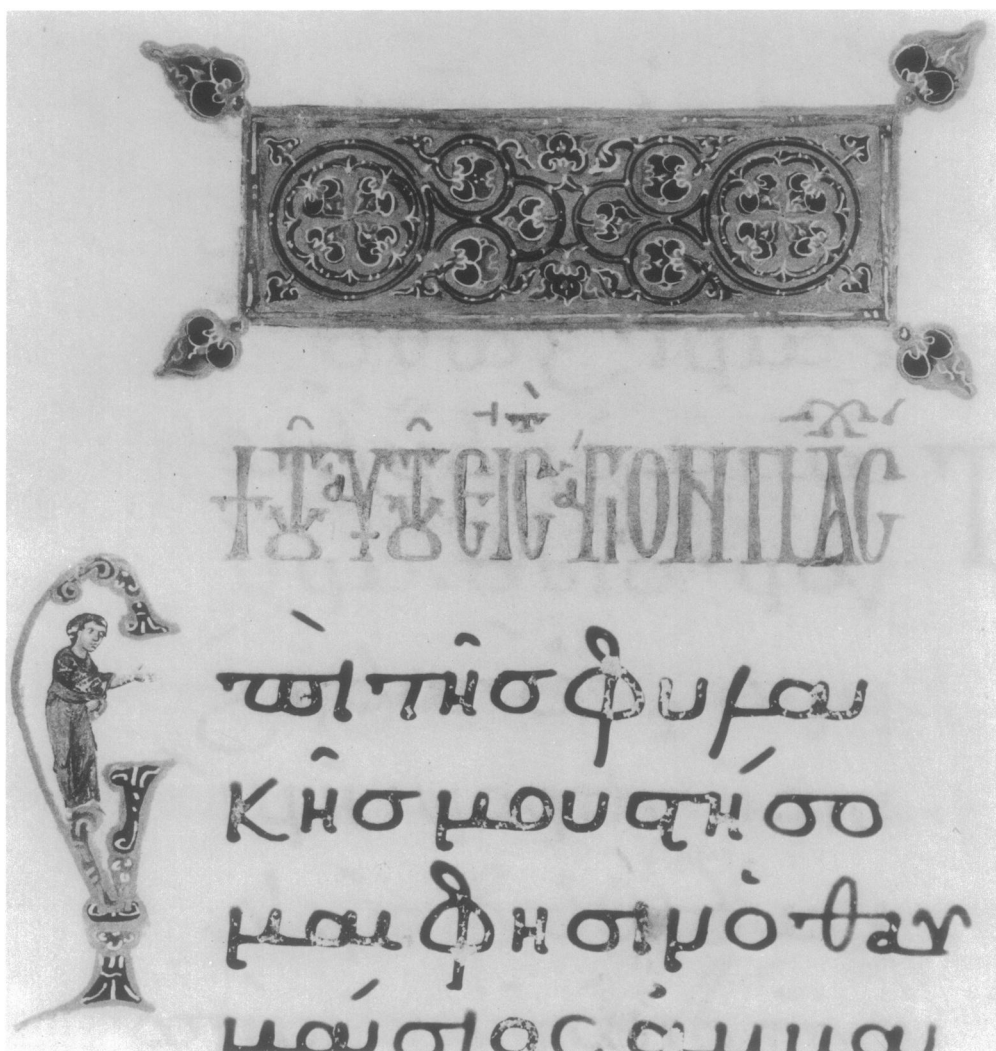 + Τοῦ αὐτοῦ εἰς τὸ ἅγιον πάσχα
Ἐπὶ τῆς φυλα
κῆς μου στήσο
μαι φησὶν ὁ θαυ
μάσιος ἀμβα